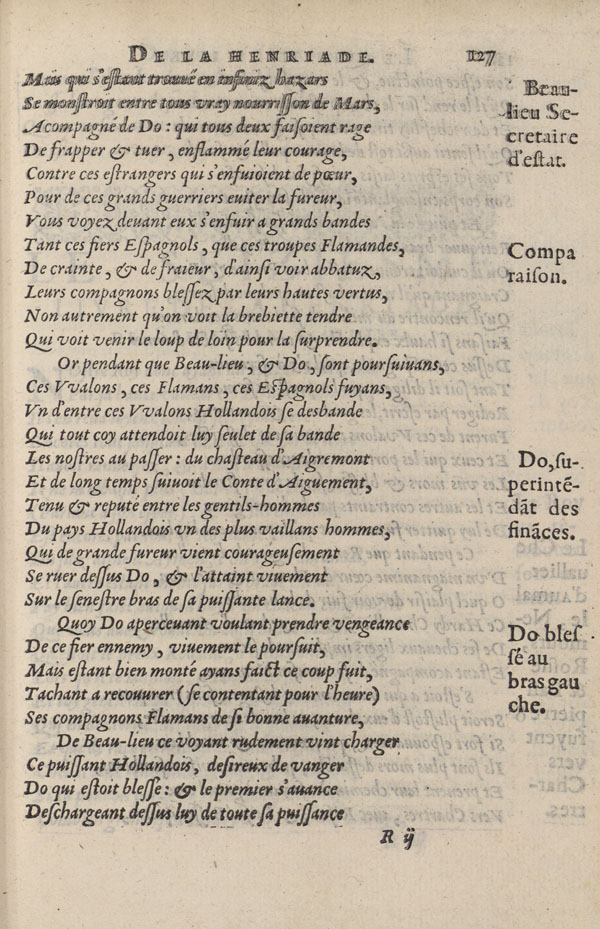 DE LA HENRIADE. 127
Mais qui s'eſtant trouué en infiniz hazars
Se monſtroit entre tous vray nourriſſon de Mars,
Acompagné de Do : qui tous deux faiſoient rage
De frapper & tuer, enflammé leur courage,
Contre ces eſtrangers qui s'enfuioient de pœur,
Pour de ces grands guerriers euiter la fureur,
Vous voyez deuant eux s'enfuir a grands bandes
Tant ces fiers Eſpagnols, que ces troupes Flamandes,
De crainte, & de fraieur, d'ainſi voir abbatuz,
Leurs compagnons bleſſez par leurs hautes vertus,
Non autrement qu'on voit la brebiette tendre
Qui voit venir le loup de loin pour la ſurprendre.
Or pendant que Beau-lieu, & Do, ſont pourſuiuans,
Ces Vvalons, ces Flamans, ces Eſpagnols fuyans,
Vn d'entre ces Vvalons Hollandois ſe desbande
Qui tout coy attendoit luy ſeulet de ſa bande
Les noſtres au paſſer : du chaſteau d'Aigremont
Et de long temps ſuiuoit le Conte d'Aiguement,
Tenu & reputé entre les gentils-hommes
Du pays Hollandois vn des plus vaillans hommes,
Qui de grande fureur vient courageuſement
Se ruer deſſus Do, & l'attaint viuement
Sur le ſeneſtre bras de ſa puiſſante lance.
Quoy Do aperceuant voulant prendre vengeance
De ce fier ennemy, viuement le pourſuit,
Mais eſtant bien monté ayans faict ce coup fuit,
Tachant a recouurer (ſe contentant pour l'heure)
Ses compagnons Flamans de ſi bonne auanture,
De Beau-lieu ce voyant rudement vint charger
Ce puiſſant Hollandois, deſireux de vanger
Do qui eſtoit bleſſe : & le premier s'auance
Deſchargeant deſſus luy de toute ſa puiſſance
R ij
Beau-
lieu Se-
cretaire
d'eſtat.
Compa
raiſon.
Do, ſu-
perintē-
dāt des
finãces.
Do bleſ
ſé au
bras gau
che.